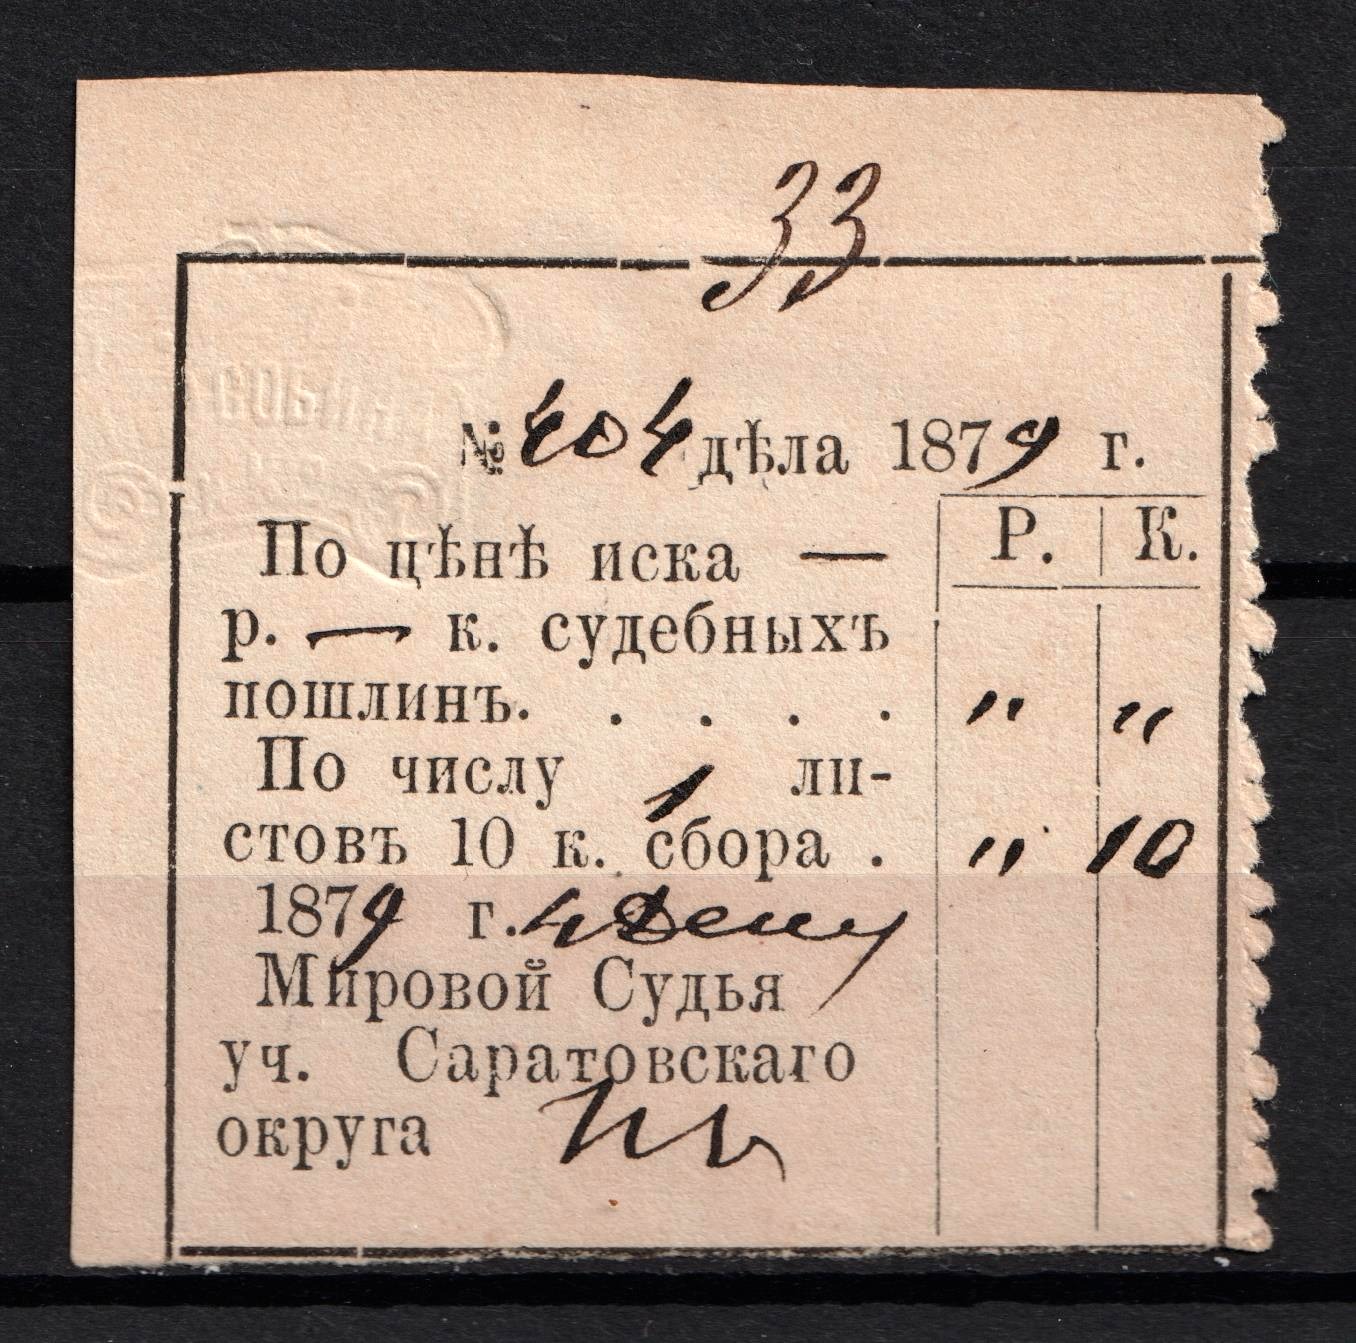 33
№ 404 дѣла 1879 г.
Р. К.
По цѣнѣ иска —
р. — к. судебныхъ
пошлинъ. . . . . " "
По числу 1 ли-
стовъ 10 к. сбора . " 10
1879 г. 4
Мировой Судья
уч. Саратовскаго
округа